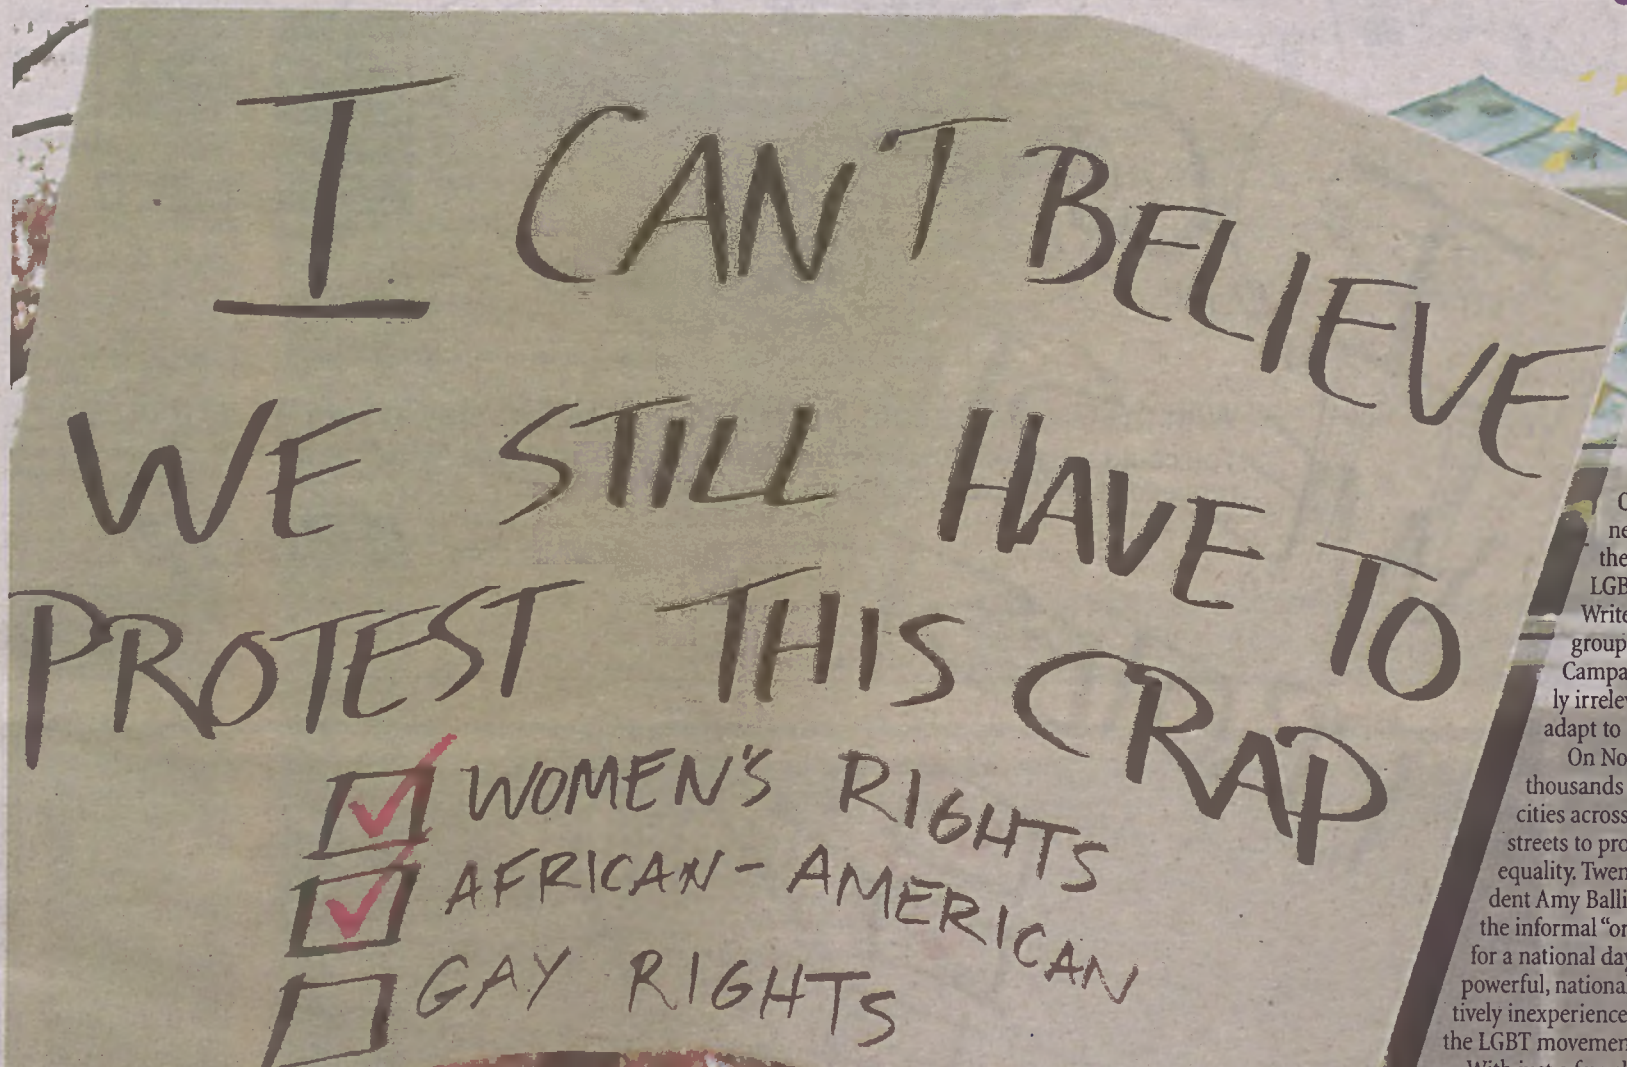 I CAN'T BELIEVE
WE STILL HAVE TO
PROTEST THIS CRAP
WOMEN'S RIGHTS
AFRICAN-AMERICAN
GAY RIGHTS
the
LGB
Write
group
Campa
ly irrele
adapt to
On No
thousands
cities across
streets to pro
equality. Twen
dent Amy Balli
the informal "or
for a national day
powerful, national
tively inexperience
the LGBT movemen